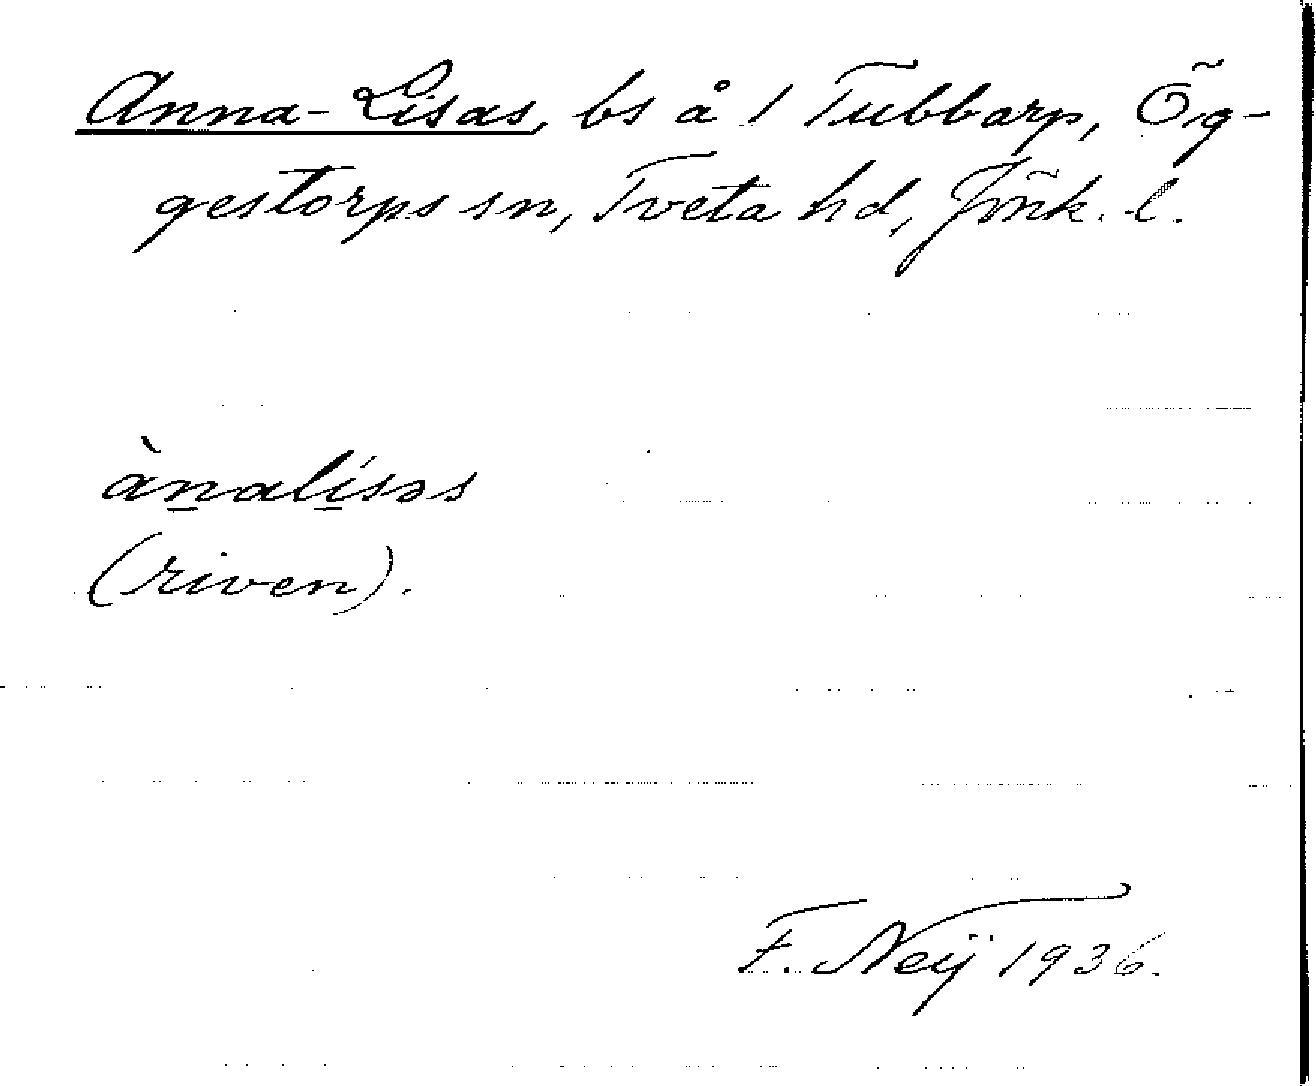 Anna-Lisas, bs å 1 Tubbarp, Õg-
gestorps sn, Tveta hd, Jõnk. l.
ànalísəs
(riven).
F. Neij 1936.